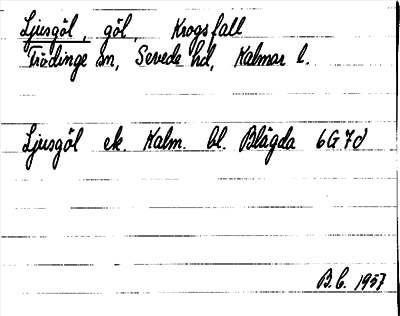 Ljusgöl, göl, Krogsfall
Frödinge sn, Sevede hd, Kalmar l.
Ljusgöl ek. Kalm. bl. Blägda 6G7d
B.C. 1957